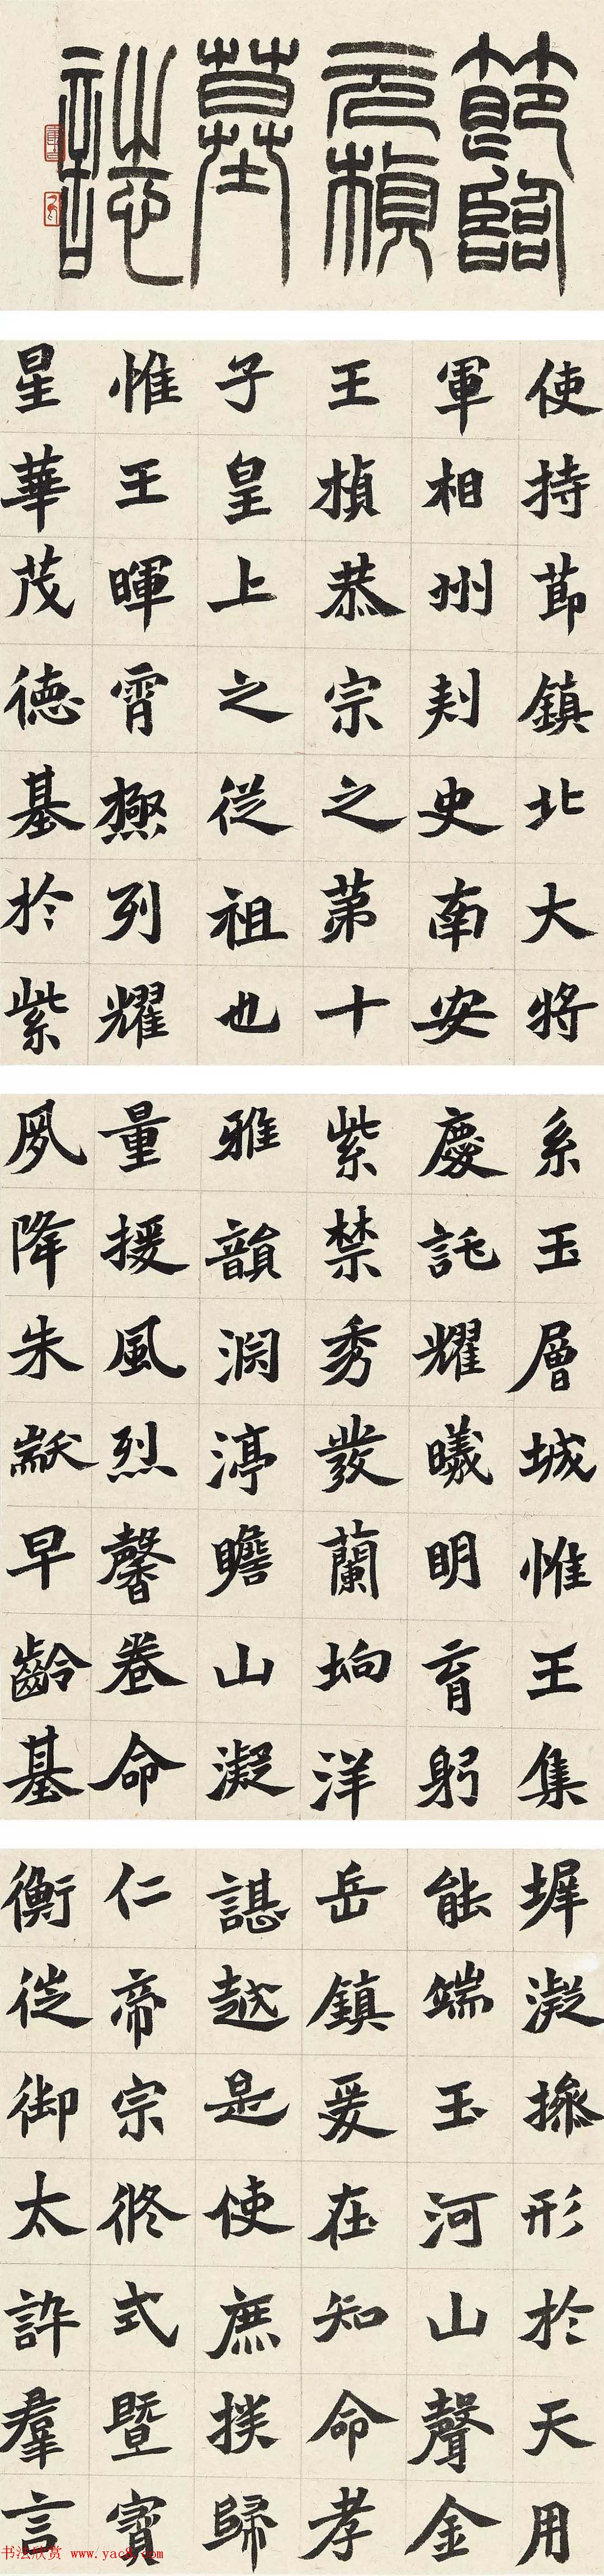 節臨
元楨
墓
誌
使持莭鎮北大將
軍相州刾史南安
王楨恭宗之苐十
子皇上之從祖也
惟王暉霄極列耀
星華茂德基於紫
系玉層城惟王集
慶託耀曦明育躬
紫禁秀發蘭坰洋
雅韻淵渟瞻山凝
量援風烈馨卷命
夙降朱黻早齡基
墀凝操形於天用
能端玉河山聲金
岳鎮爰在知命孝
諶越是使庶族歸
仁帝宗攸式暨寶
衡從御太訏羣言
书法欣赏 www.yac8.com